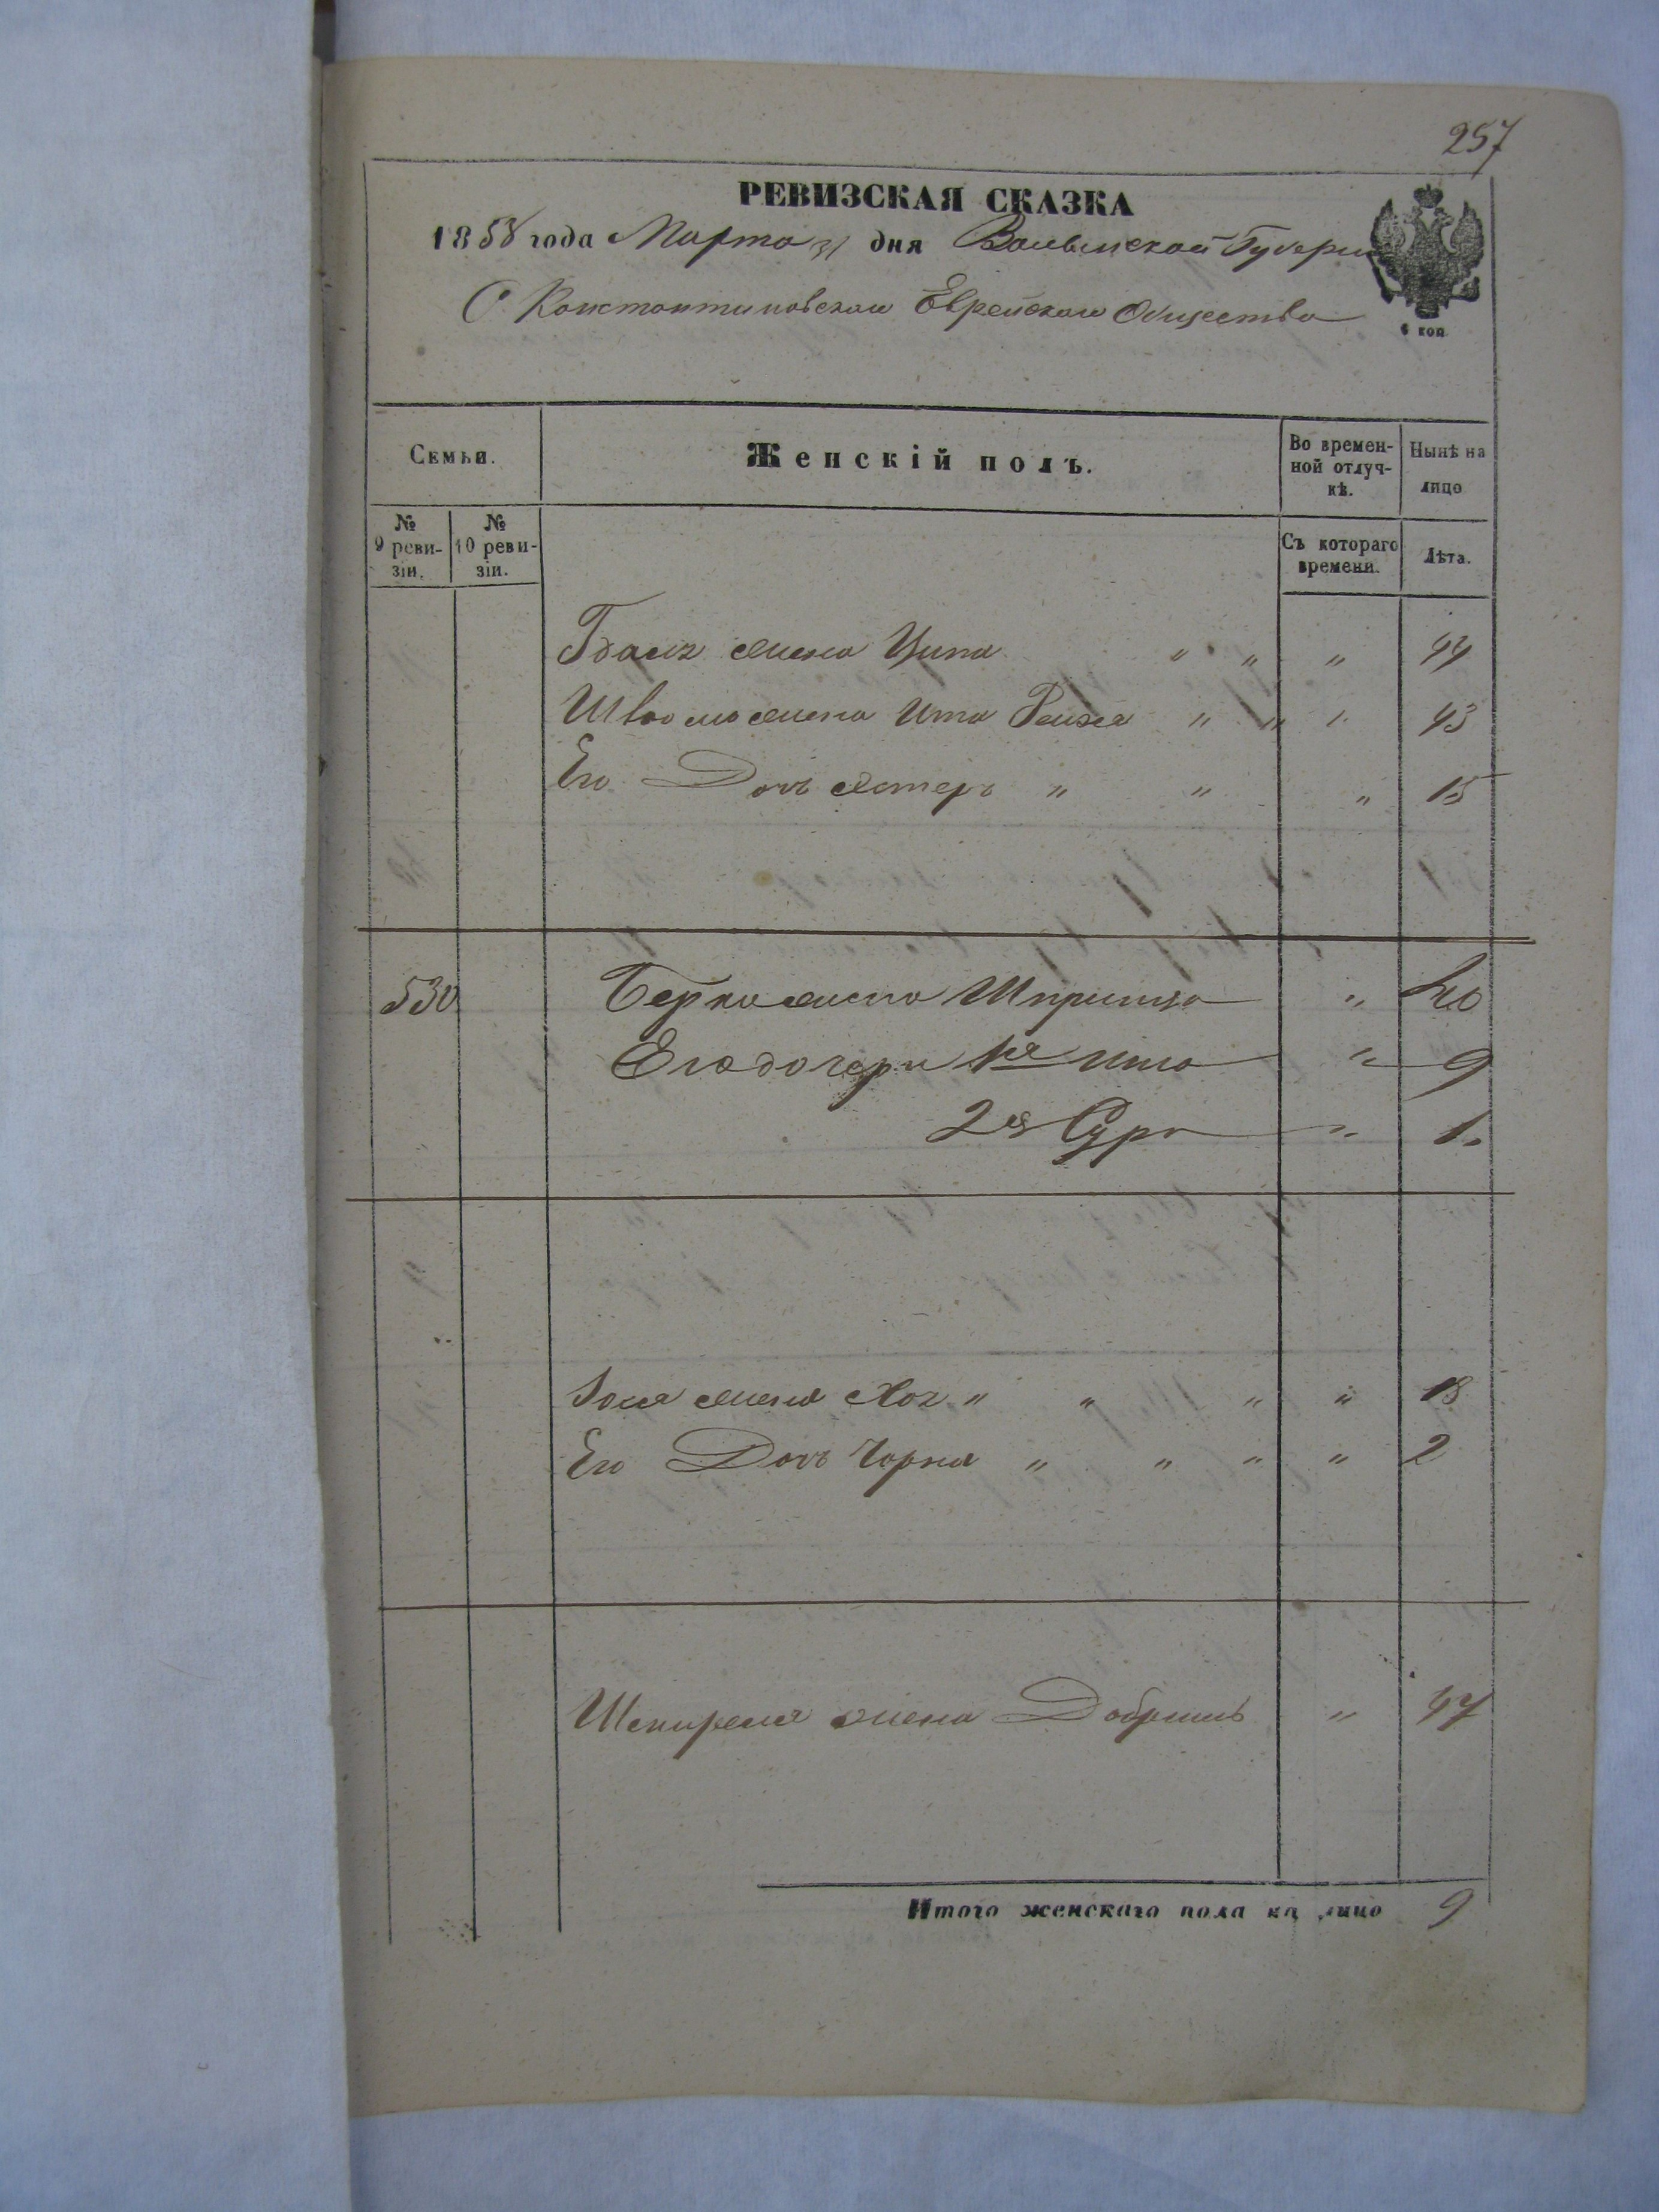 257
РЕВИЗСКАЯ СКАЗКА
1858 года Марта 31 дня Волынской Губернии
С. Константиновскаго Еврейскаго Общества
6 коп
Семьи.
Женскій полъ.
Во времен-
ной отлуч-
кѣ.
Нынѣ на
лицо
№
9 реви-
зіи.
№
10 реви-
зіи.
Съ котораго
времени.
Лѣта.
жена Ципа " " " 44
жена Ита Рейзя " " " 43
Его Дочь Эстеръ " " " 15
530 Берка жена Шпринца " 40
Его дочери 1я Ита " 9
2я Сура " 1
жена " " " " 18
Его Дочь Чарна " " " " 2
жена Добришъ " 47
Итого женскаго пола на лицо 9